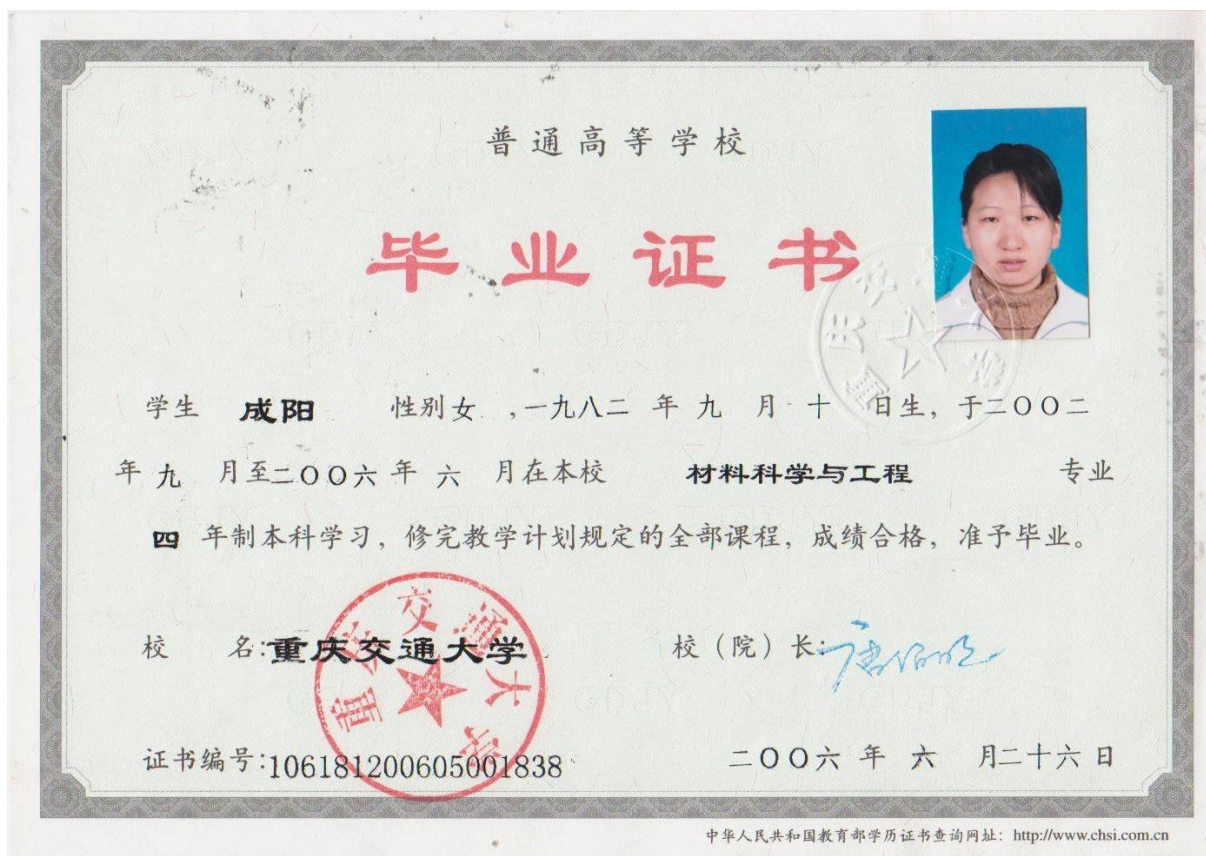 普通高等学校
毕业证书
学生 成阳 性别女 ,一九八二 年 九 月 十 日生，于二〇〇二
年 九 月至二〇〇六 年 六 月在本校 材料科学与工程 专业
四 年制本科学习，修完教学计划规定的全部课程，成绩合格，准予毕业。
校 名:重庆交通大学 校（院）长:唐伯明
重庆交通大学
证书编号:106181200605001838 二〇〇六 年 六 月二十六日
中华人民共和国教育部学历证书查询网址：http://www.chsi.com.cn